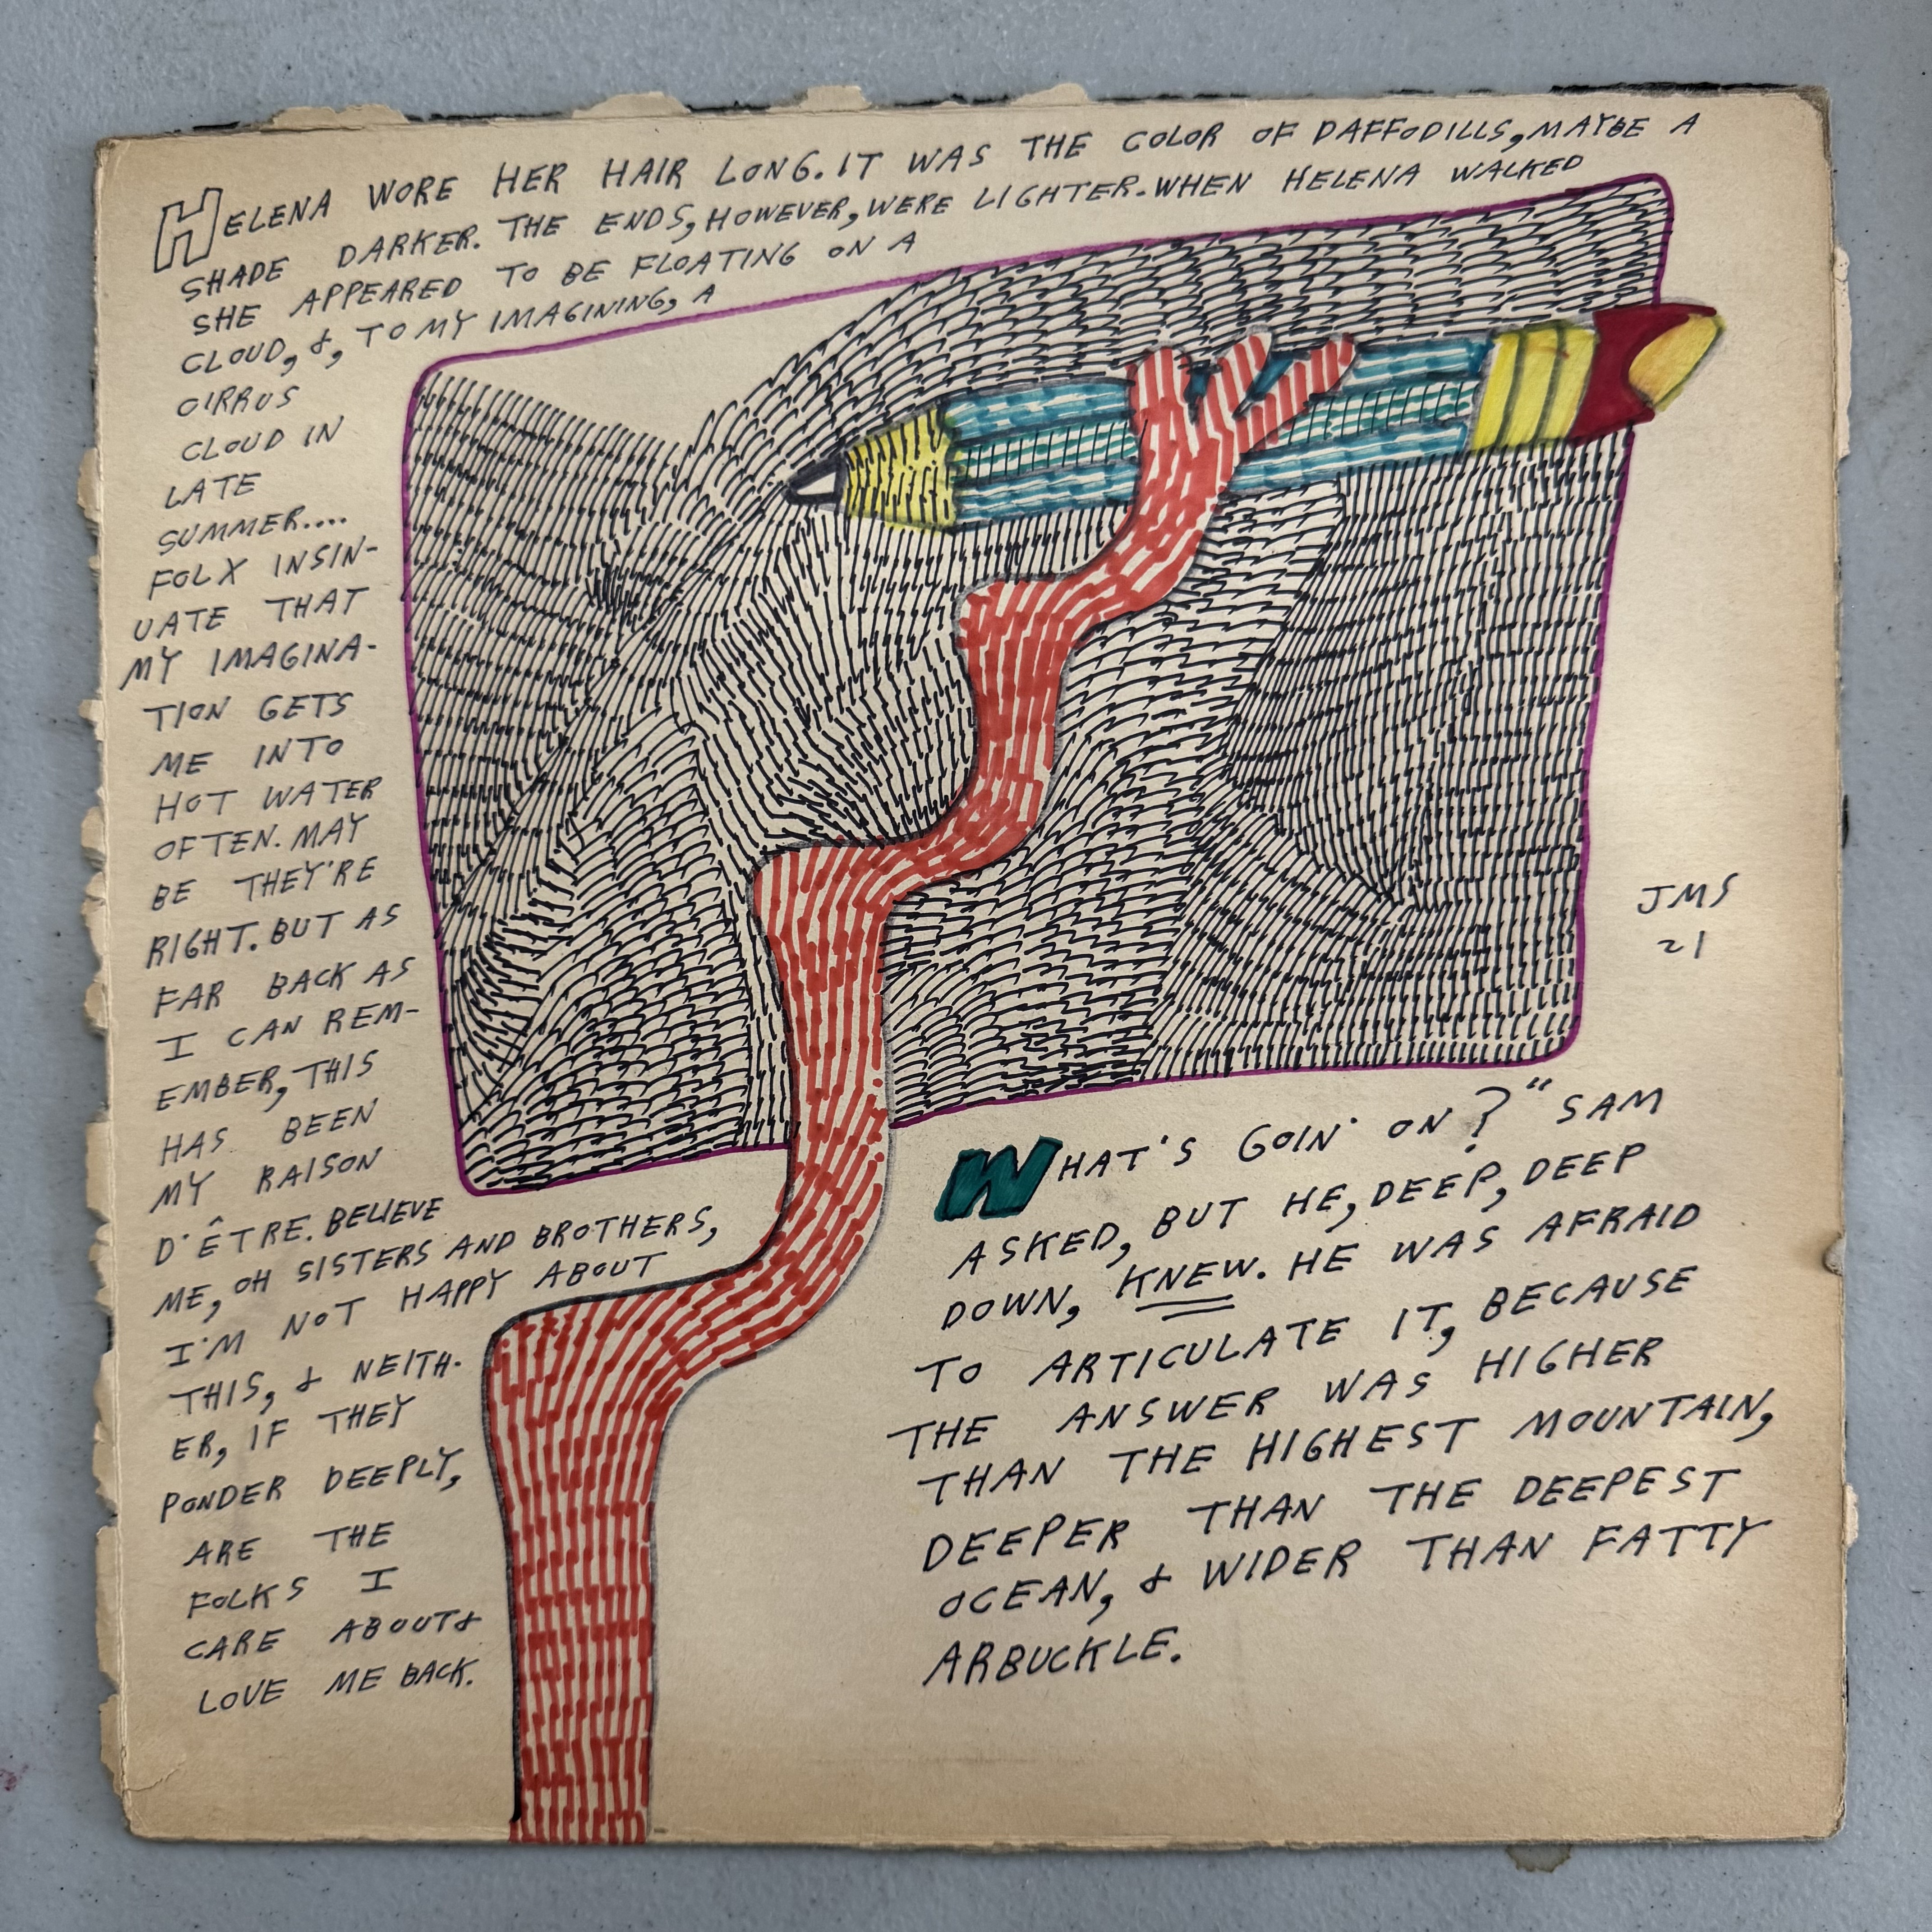 HELENA WORE HER HAIR LONG. IT WAS THE COLOR OF DAFFODILLS, MAYBE A
SHADE DARKER. THE ENDS, HOWEVER, WERE LIGHTER. WHEN HELENA WALKED
SHE APPEARED TO BE FLOATING ON A
CLOUD, &, TO MY IMAGINING, A
CIRRUS
CLOUD IN
LATE
SUMMER....
FOLX INSIN-
UATE THAT
MY IMAGINA-
TION GETS
ME INTO
HOT WATER
OFTEN. MAY
BE THEY'RE
RIGHT. BUT AS
FAR BACK AS
I CAN REM-
EMBER, THIS
HAS BEEN
MY RAISON
D'ÊTRE. BELIEVE
ME, OH SISTERS AND BROTHERS,
I'M NOT HAPPY ABOUT
THIS, & NEITH-
ER, IF THEY
PONDER DEEPLY,
ARE THE
FOLKS I
CARE ABOUT &
LOVE ME BACK.
WHAT'S GOIN' ON?" SAM
ASKED, BUT HE, DEEP, DEEP
DOWN, KNEW. HE WAS AFRAID
TO ARTICULATE IT, BECAUSE
THE ANSWER WAS HIGHER
THAN THE HIGHEST MOUNTAIN,
DEEPER THAN THE DEEPEST
OCEAN, & WIDER THAN FATTY
ARBUCKLE.
JMS
21